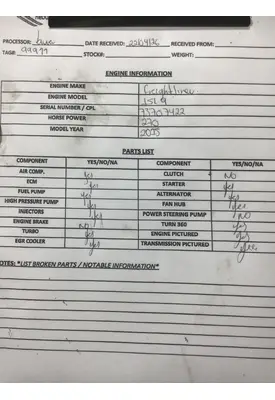 PROCESSOR: DATE RECEIVED: RECEIVED FROM:
TAG#: 99999 STOCK#: WEIGHT:
ENGINE INFORMATION
ENGINE MAKE Freightliner
ENGINE MODEL
SERIAL NUMBER / CPL
HORSE POWER 270
MODEL YEAR
PARTS LIST
COMPONENT YES/NO/NA COMPONENT YES/NO/NA
AIR COMP. yes CLUTCH NO
ECM yes STARTER yes
FUEL PUMP yes ALTERNATOR yes
HIGH PRESSURE PUMP yes FAN HUB yes
INJECTORS yes POWER STEERING PUMP NO
ENGINE BRAKE NO TURN 360 yes
TURBO yes ENGINE PICTURED yes
EGR COOLER yes TRANSMISSION PICTURED yes
NOTES: *LIST BROKEN PARTS / NOTABLE INFORMATION*